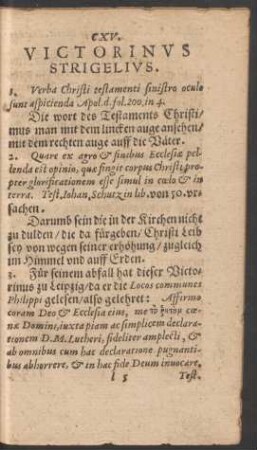 CXV.
VICTORINVS
STRIGELIVS.
1. Verba Christi testamenti sinistro oculo
sunt aspicienda Apol. d. fol. 200. in 4.
Die wort des Testaments Christi/
mus man mit dem lincken auge ansehen/
mit dem rechten auge auff die Väter.
2. Quare ex agro & finibus Ecclesiæ pel-
lenda est opinio, quæ fingit corpus Christi, pro-
pter glorificationem esse simul in cœlo & in
terra. Test. Iohan. Schutz in lib. von 50. vr-
sachen.
Darumb sein die in der Kirchen nicht
zu dulden/ die da fürgeben/ Christi Leib
sey von wegen seiner erhöhung/ zugleich
im Himmel vnd auff Erden.
3. Für seinem abfall hat dieser Victo-
rinus zu Leipzig/ da er die Locos communes
Philippi gelesen/ also gelehret: Affirmo
coram Deo & Ecclesia eius, me τὸ ῥητὸν cœ-
næ Domini, iuxta piam ac simplicem declara-
tionem D. M. Lutheri, fideliter amplecti, &
ab omnibus cum hac declaratione pugnanti-
bus abhorrere, & in hac fide Deum inuocare.
l 5 Test.